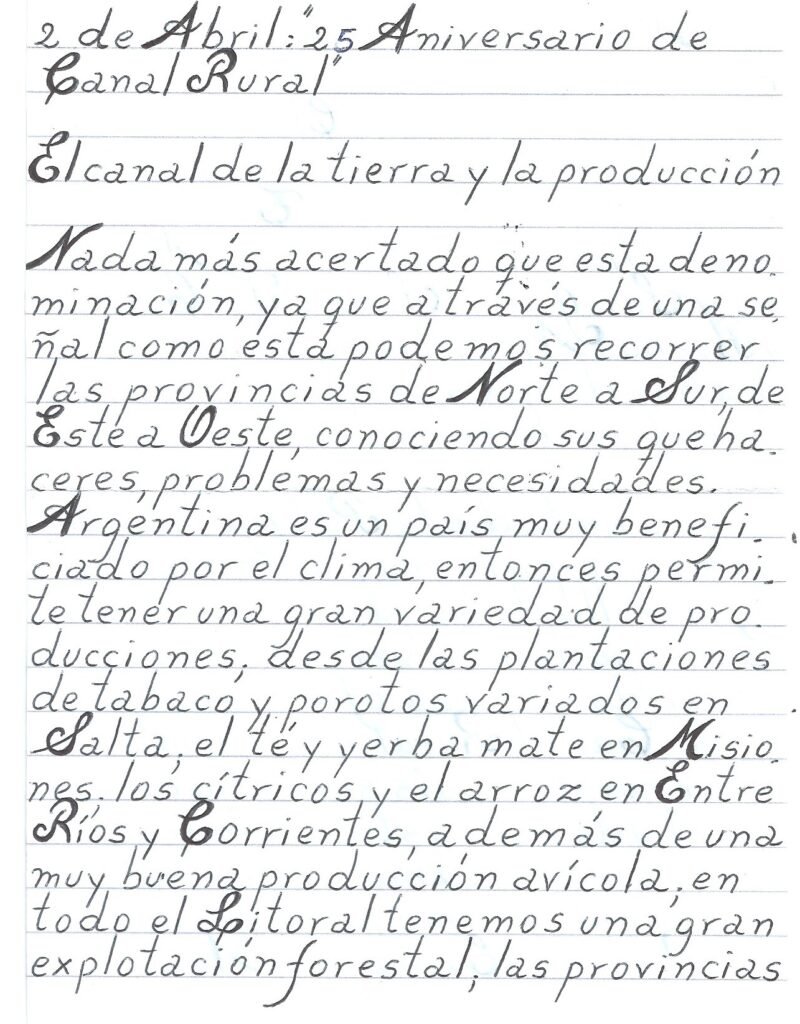 2 de Abril: "25 Aniversario de
Canal Rural"
El canal de la tierra y la producción
Nada más acertado que esta deno-
minación, ya que a través de una se-
ñal como esta podemos recorrer
las provincias de Norte a Sur, de
Este a Oeste, conociendo sus queha-
ceres, problemas y necesidades.
Argentina es un país muy benefi-
ciado por el clima, entonces permi-
te tener una gran variedad de pro-
ducciones; desde las plantaciones
de tabaco y porotos variados en
Salta; el té y yerba mate en Misio-
nes; los cítricos y el arroz en Entre
Ríos y Corrientes, además de una
muy buena producción avícola; en
todo el Litoral tenemos una gran
explotación forestal; las provincias